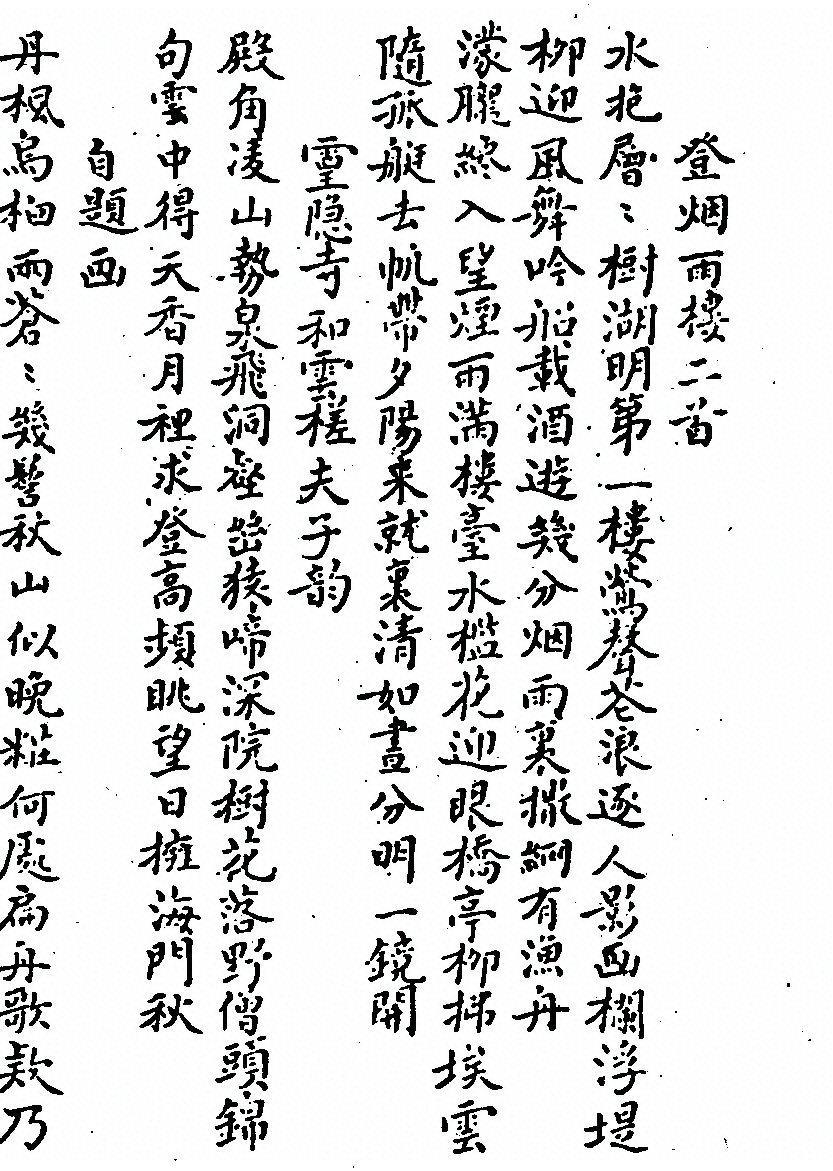 登烟雨樓二首
水抱層〻樹湖明第一樓鶯聲花浪逐人影画欄浮堤
柳迎風舞吟船載酒遊幾分烟雨裏撒網有漁舟
濛朧終入望煙雨滿樓臺水檻花迎眼橋亭柳拂埃雲
隨孤艇去帆帶夕陽来就裏清如晝分明一鏡開
靈隐寺和雲槎夫子韵
殿角凌山勢泉飛洞壑幽猿啼深院樹花落野僧頭錦
句雲中得天香月裡求登高頻眺望日擁海門秋
自題画
丹楓烏桕雨蒼〻幾髻秋山似晚粧何處扁舟歌欵乃